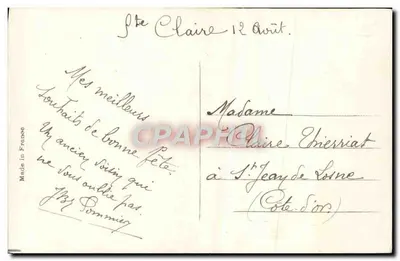 Ste Claire 12 Août.
Mes meilleurs
souhaits de bonne fête.
Un ancien voisin qui
ne vous oublie pas.
Pommier
Madame
Claire Thierriat
à St Jean de Losne
(Côte d'or)
Made in France
CPAPHIL